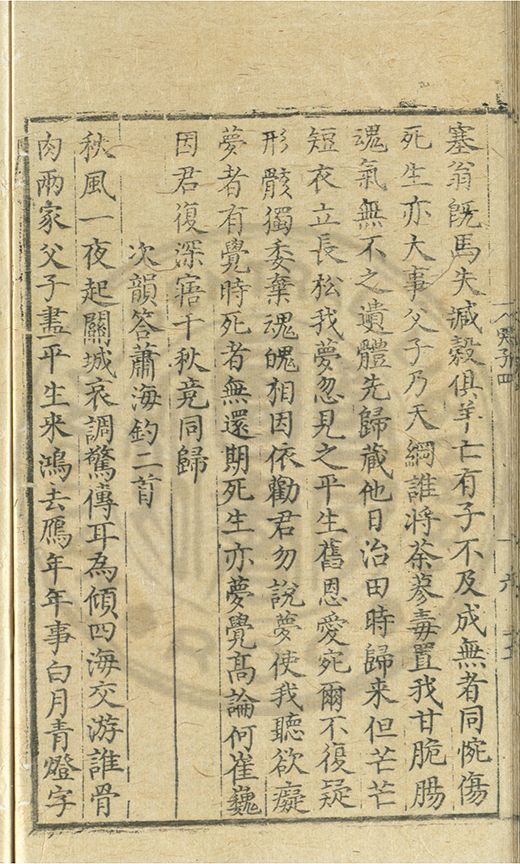 塞翁旣馬失臧穀俱羊亡有子不及成無者同惋傷
死生亦大事父子乃天綱誰將荼蓼毒置我甘脆腸
魂氣無不之遺體先歸藏他日治田時歸来但芒芒
短衣立長松我夢忽見之平生舊恩愛宛爾不復疑
形骸獨委棄魂魄相因依勸君勿說夢使我聽欲癡
夢者有覺時死者無還期死生亦夢覺高論何崔巍
因君復深寤千秋竟同歸
次韻答蕭海釣二首
秋風一夜起關城哀調驚傳耳為傾四海交游誰骨
肉兩家父子盡平生来鴻去鴈年年事白月青燈字